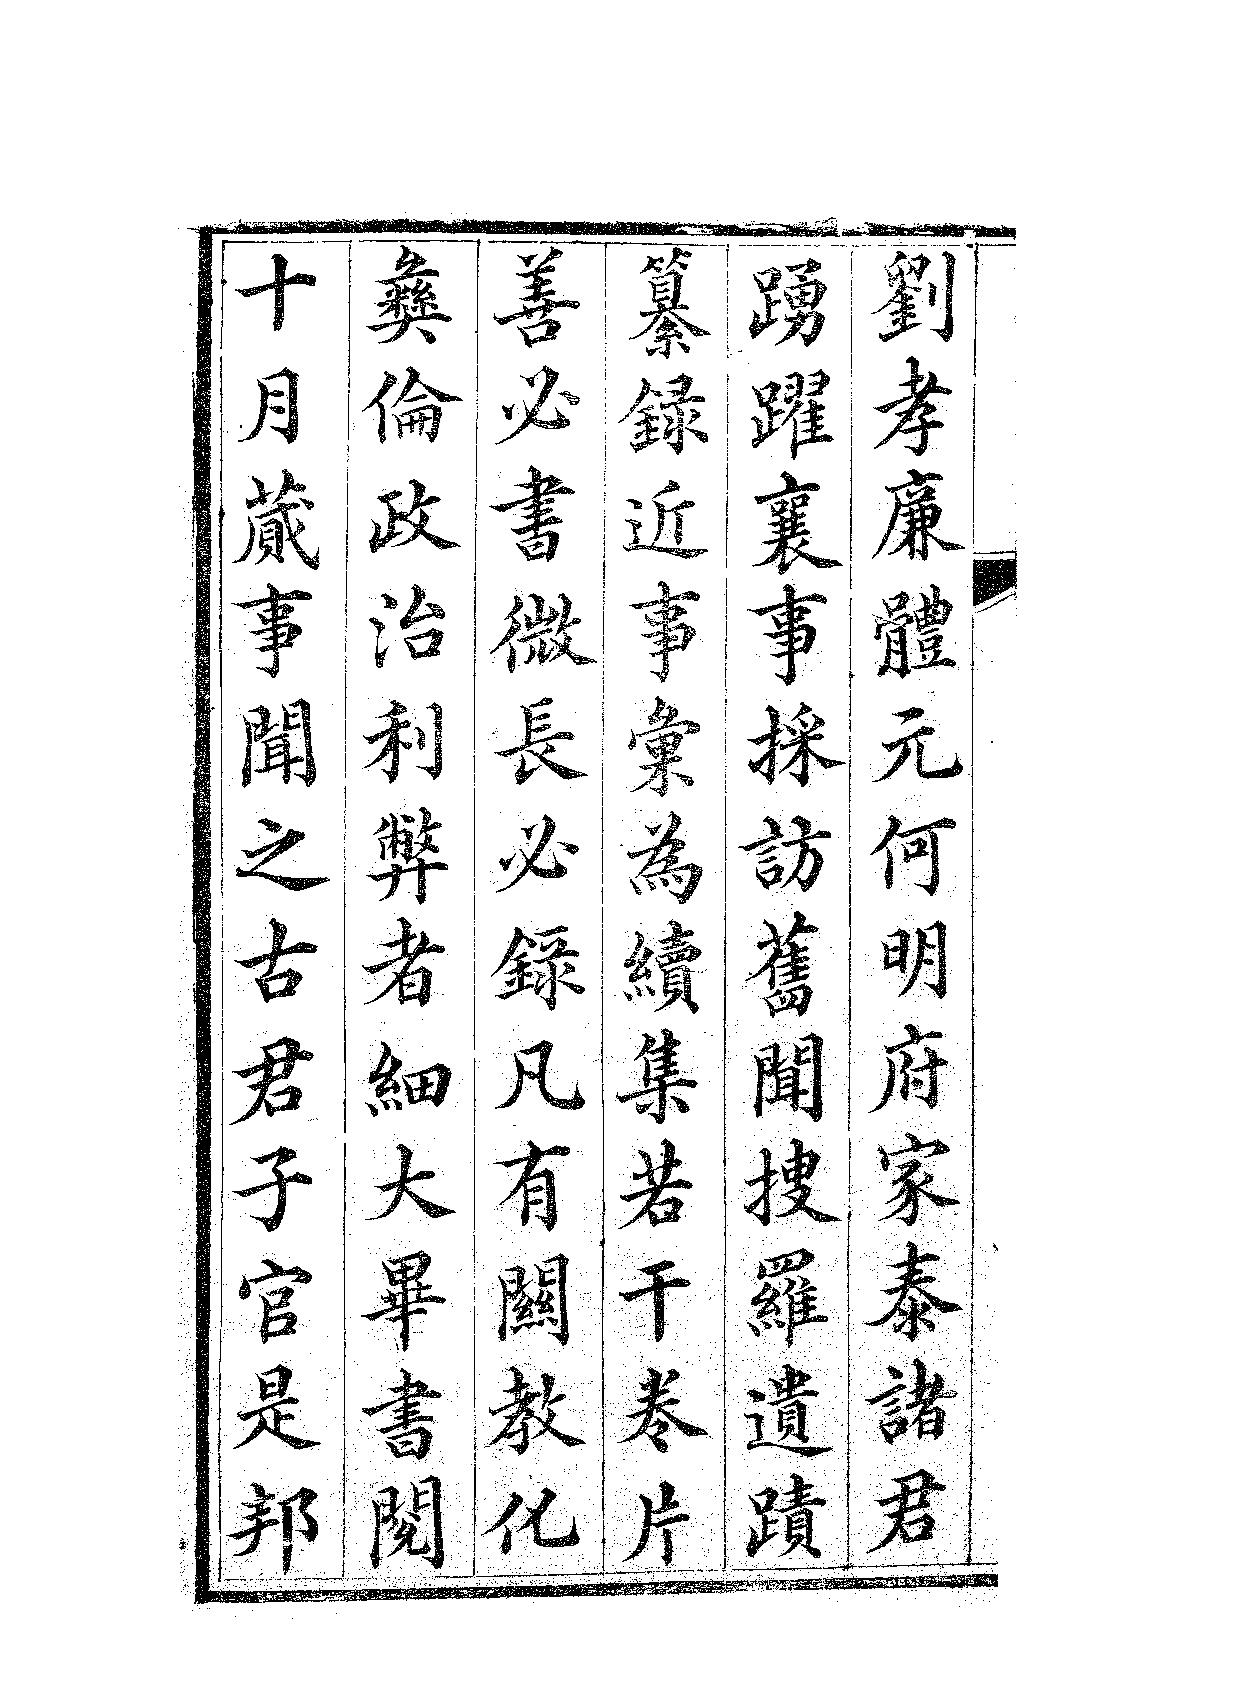 劉孝廉體元何明府家泰諸君
踴躍襄事採訪舊聞搜羅遺蹟
纂錄近事彙為續集若干卷片
善必書微長必錄凡有關教化
彝倫政治利弊者細大畢書閱
十月蕆事聞之古君子官是邦